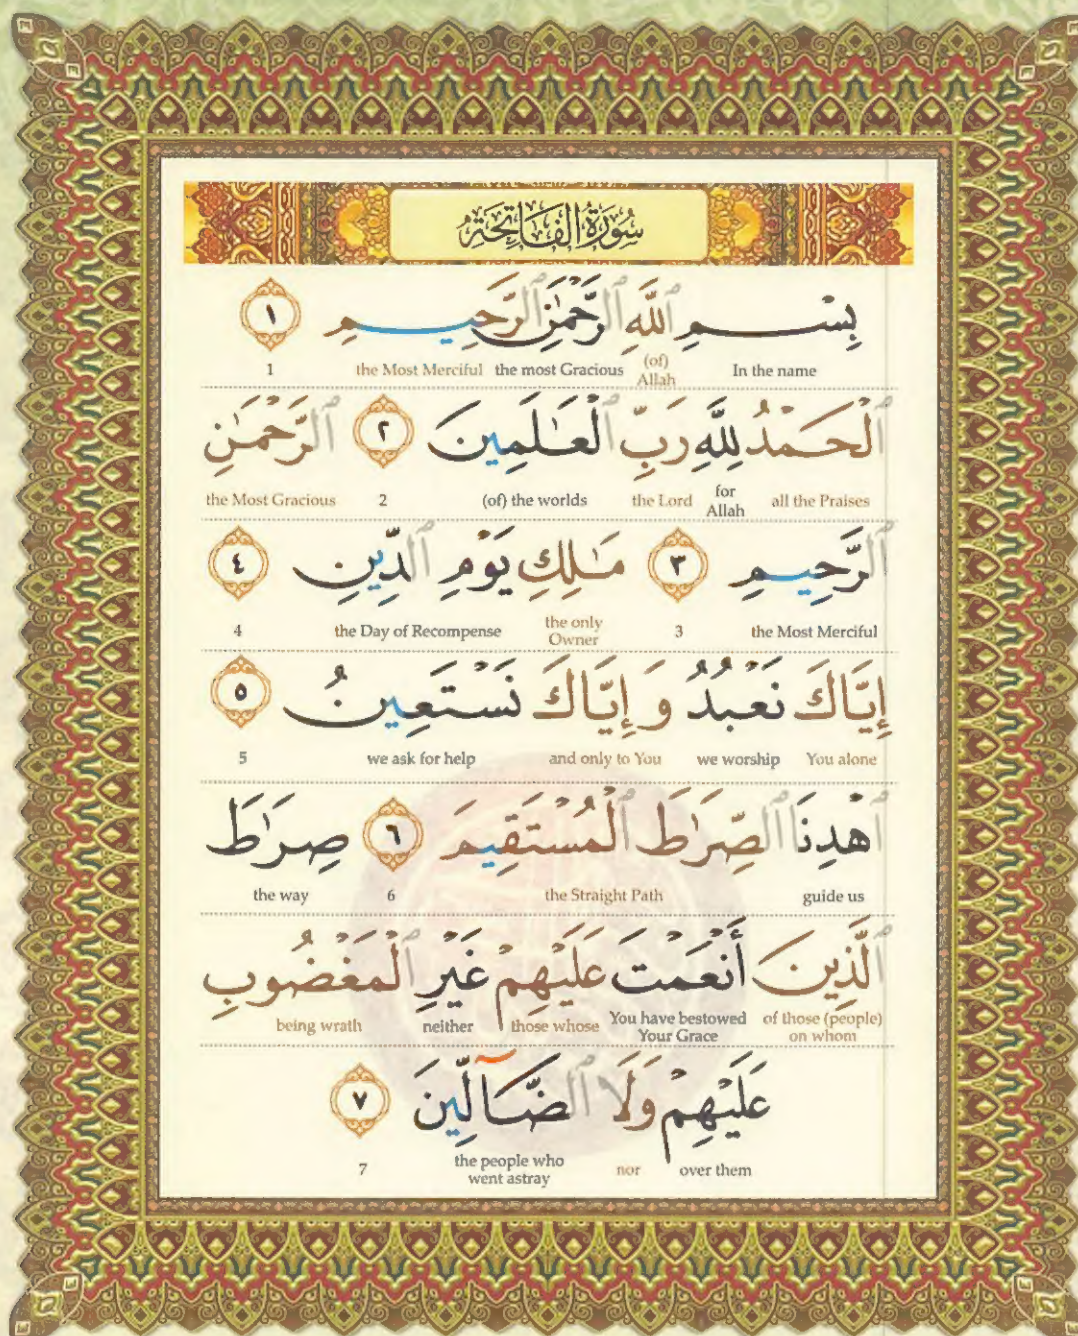 سُورَةُ الْفَاتِحَةِ
بِسْمِ ٱللَّهِ ٱلرَّحْمَٰنِ ٱلرَّحِيمِ ١
In the name (of) Allah the most Gracious the Most Merciful 1
ٱلْحَمْدُ لِلَّهِ رَبِّ ٱلْعَٰلَمِينَ ٢ ٱلرَّحْمَٰنِ
all the Praises for Allah the Lord (of) the worlds 2 the Most Gracious
ٱلرَّحِيمِ ٣ مَٰلِكِ يَوْمِ ٱلدِّينِ ٤
the Most Merciful 3 the only Owner the Day of Recompense 4
إِيَّاكَ نَعْبُدُ وَإِيَّاكَ نَسْتَعِينُ ٥
You alone we worship and only to You we ask for help 5
ٱهْدِنَا ٱلصِّرَٰطَ ٱلْمُسْتَقِيمَ ٦ صِرَٰطَ
guide us the Straight Path 6 the way
ٱلَّذِينَ أَنْعَمْتَ عَلَيْهِمْ غَيْرِ ٱلْمَغْضُوبِ
of those (people) on whom You have bestowed Your Grace those whose neither being wrath
عَلَيْهِمْ وَلَا ٱلضَّآلِّينَ ٧
over them nor the people who went astray 7